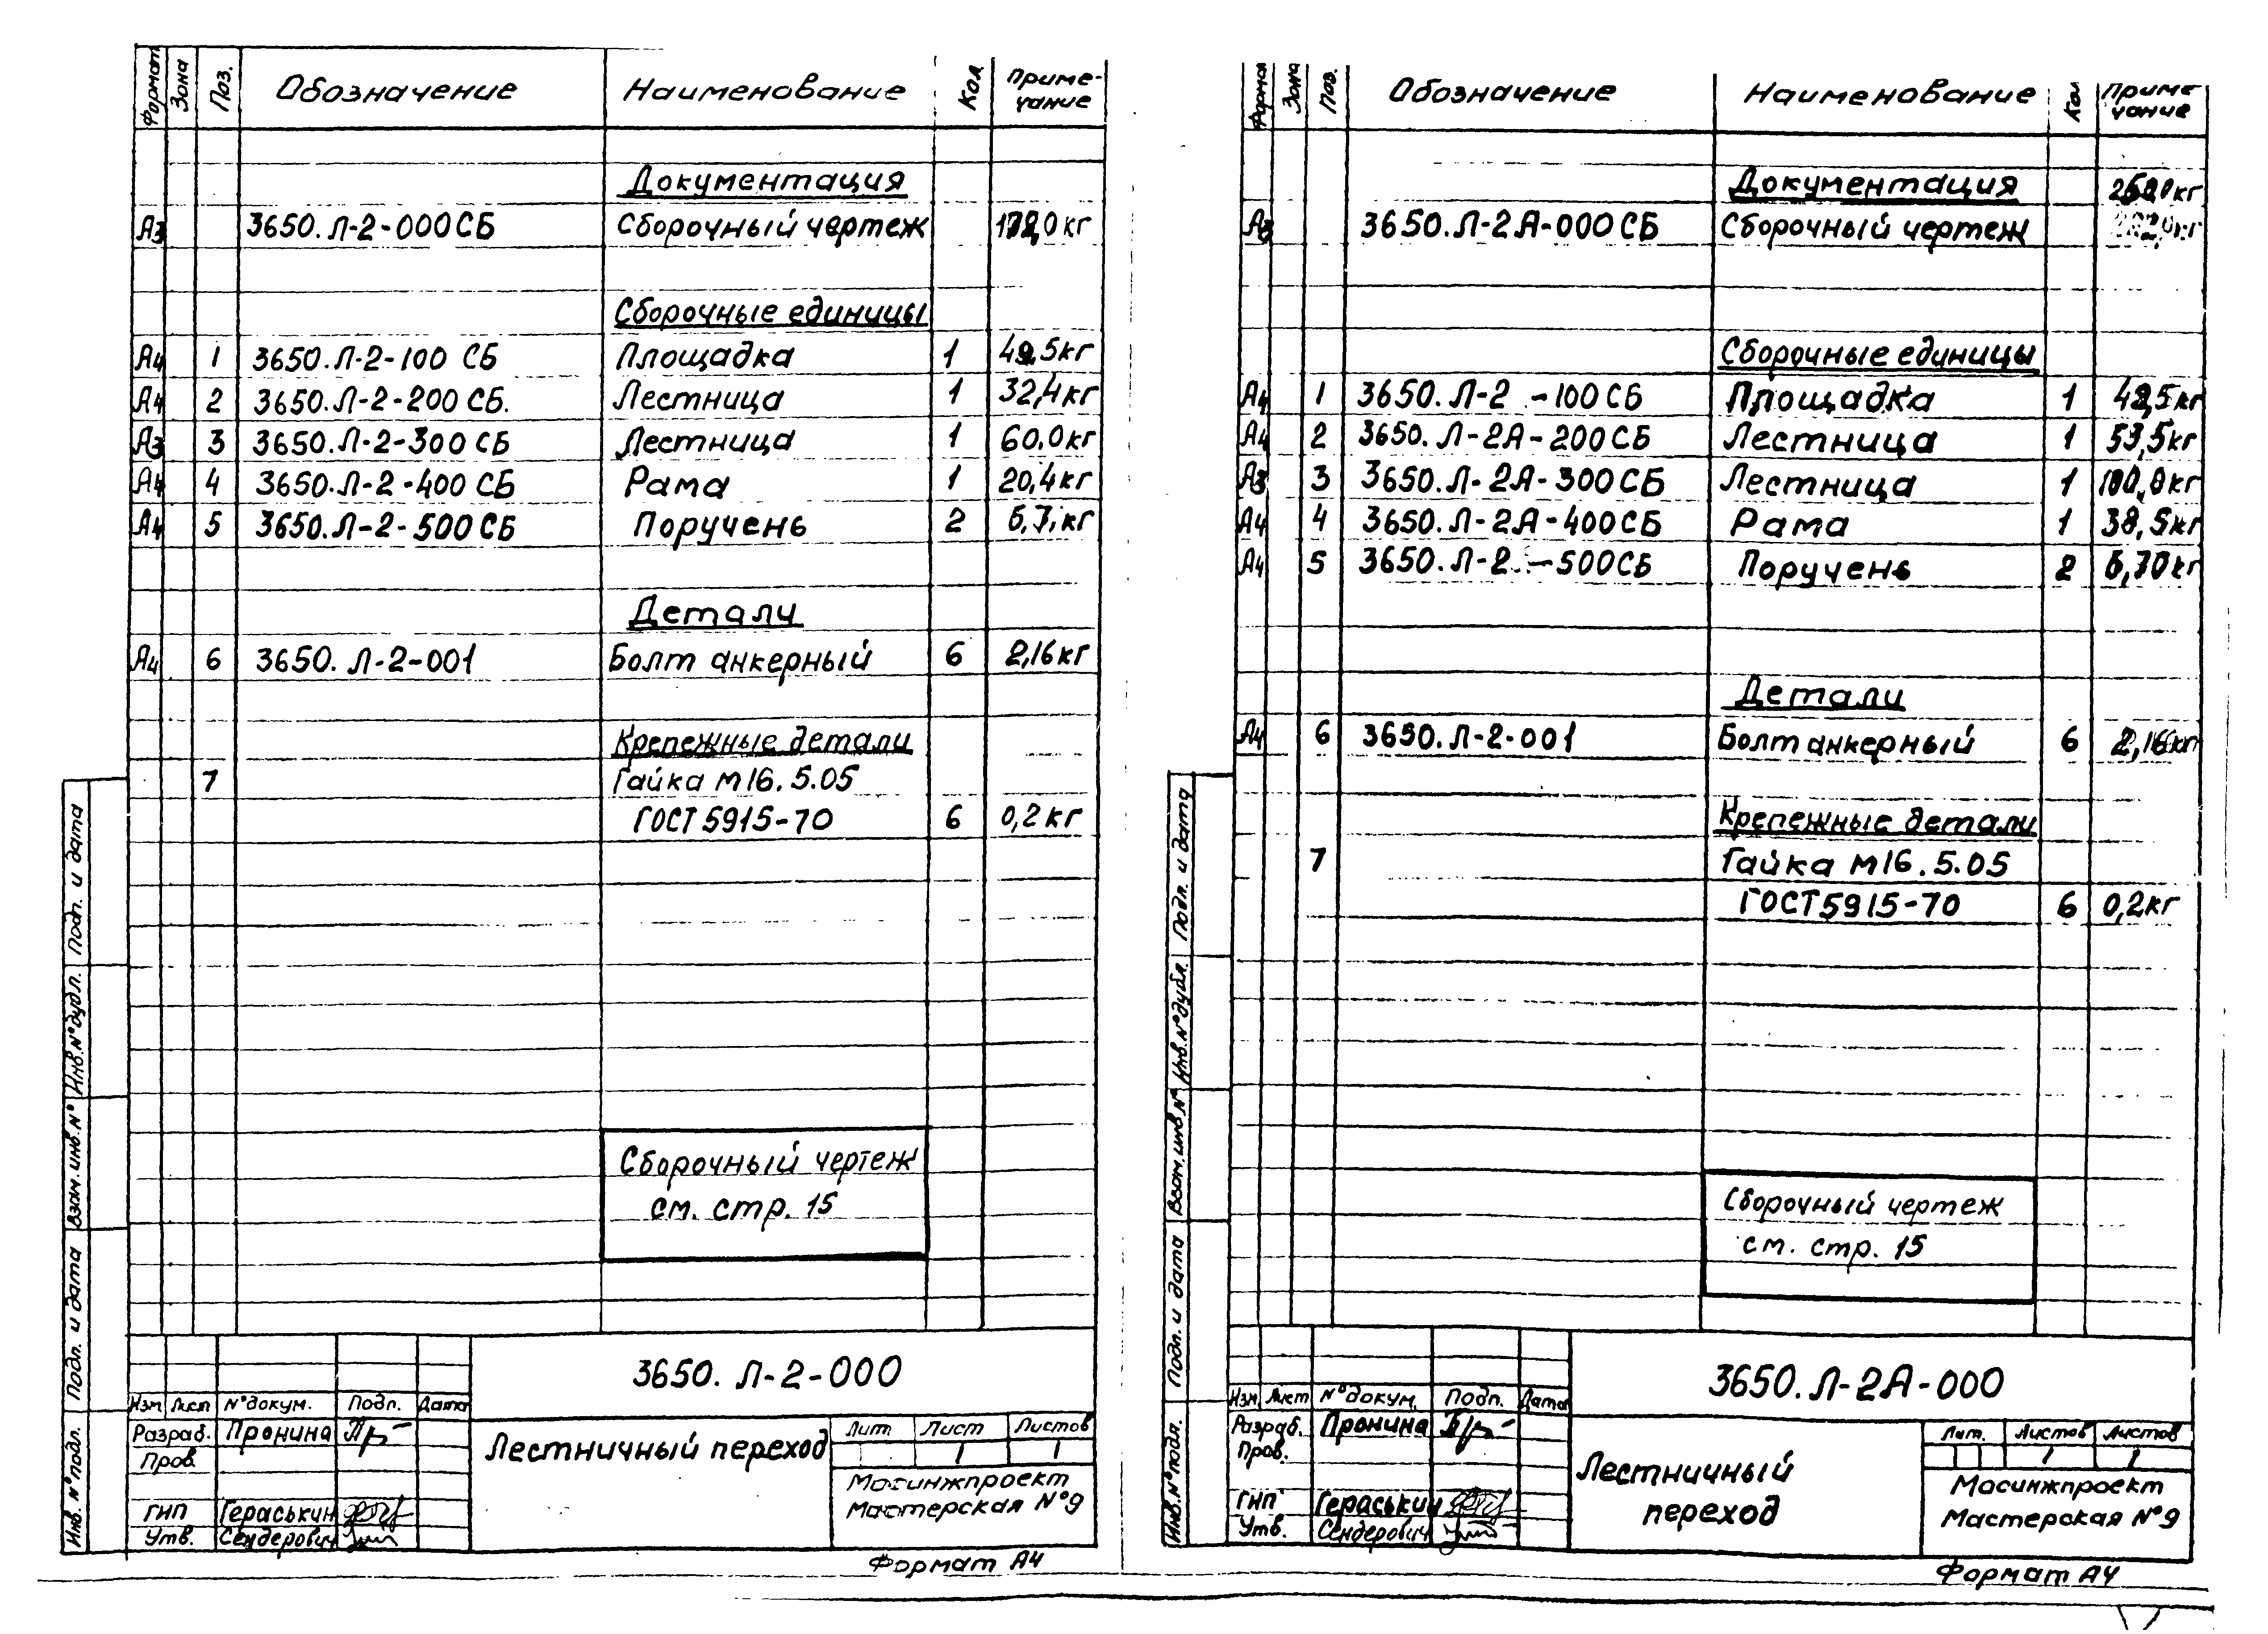 Формат Зона Поз. Обозначение Наименование Кол. Приме-
чание
Документация
А3 3650.Л-2-000СБ Сборочный чертеж
Сборочные единицы
А4 1 3650.Л-2-100 СБ Площадка 1
А4 2 3650.Л-2-200 СБ. Лестница 1 32,4кг
А3 3 3650.Л-2-300 СБ Лестница 1 60,0кг
А4 4 3650.Л-2-400 СБ Рама 1 20,4кг
А4 5 3650.Л-2-500 СБ Поручень 2
Детали
А4 6 3650. Л-2-001 Болт анкерный 6 2,16кг
Крепежные детали
7 Гайка М16.5.05
ГОСТ 5915-70 6 0,2кг
Сборочный чертеж
см. стр. 15
Инв. № подл. Подп. и дата Взам. инв. № Инв. № дубл. Подп. и дата
3650. Л-2-000
Изм Лист № докум. Подп. Дата
Разраб. Пронина
Пров.
ГИП Гераськин
Утв. Сендерович
Лестничный переход
Лит. Лист Листов
1 1
Мосинжпроект
Мастерская №9
Формат А4
Формат Зона Поз. Обозначение Наименование Кол Приме-
чание
Документация
А3 3650.Л-2А-000СБ Сборочный чертеж
Сборочные единицы
А4 1 3650.Л-2 -100СБ Площадка 1
А4 2 3650.Л-2А-200СБ Лестница 1 53,5кг
А3 3 3650.Л-2А-300СБ Лестница 1
А4 4 3650.Л-2А-400СБ Рама 1 38,5кг
А4 5 3650.Л-2 -500СБ Поручень 2
Детали
А4 6 3650.Л-2-001 Болт анкерный 6 2,16кг
Крепежные детали
7 Гайка М16.5.05
ГОСТ 5915-70 6 0,2кг
Сборочный чертеж
см. стр. 15
Инв. № подл. Подп. и дата Взам. инв. № Инв. № дубл. Подп. и дата
3650.Л-2А-000
Изм. Лист № докум. Подп. Дата
Разраб. Пронина
Пров.
ГИП Гераськин
Утв. Сендерович
Лестничный
переход
Лит. Листов Листов
1 1
Мосинжпроект
Мастерская №9
Формат А4